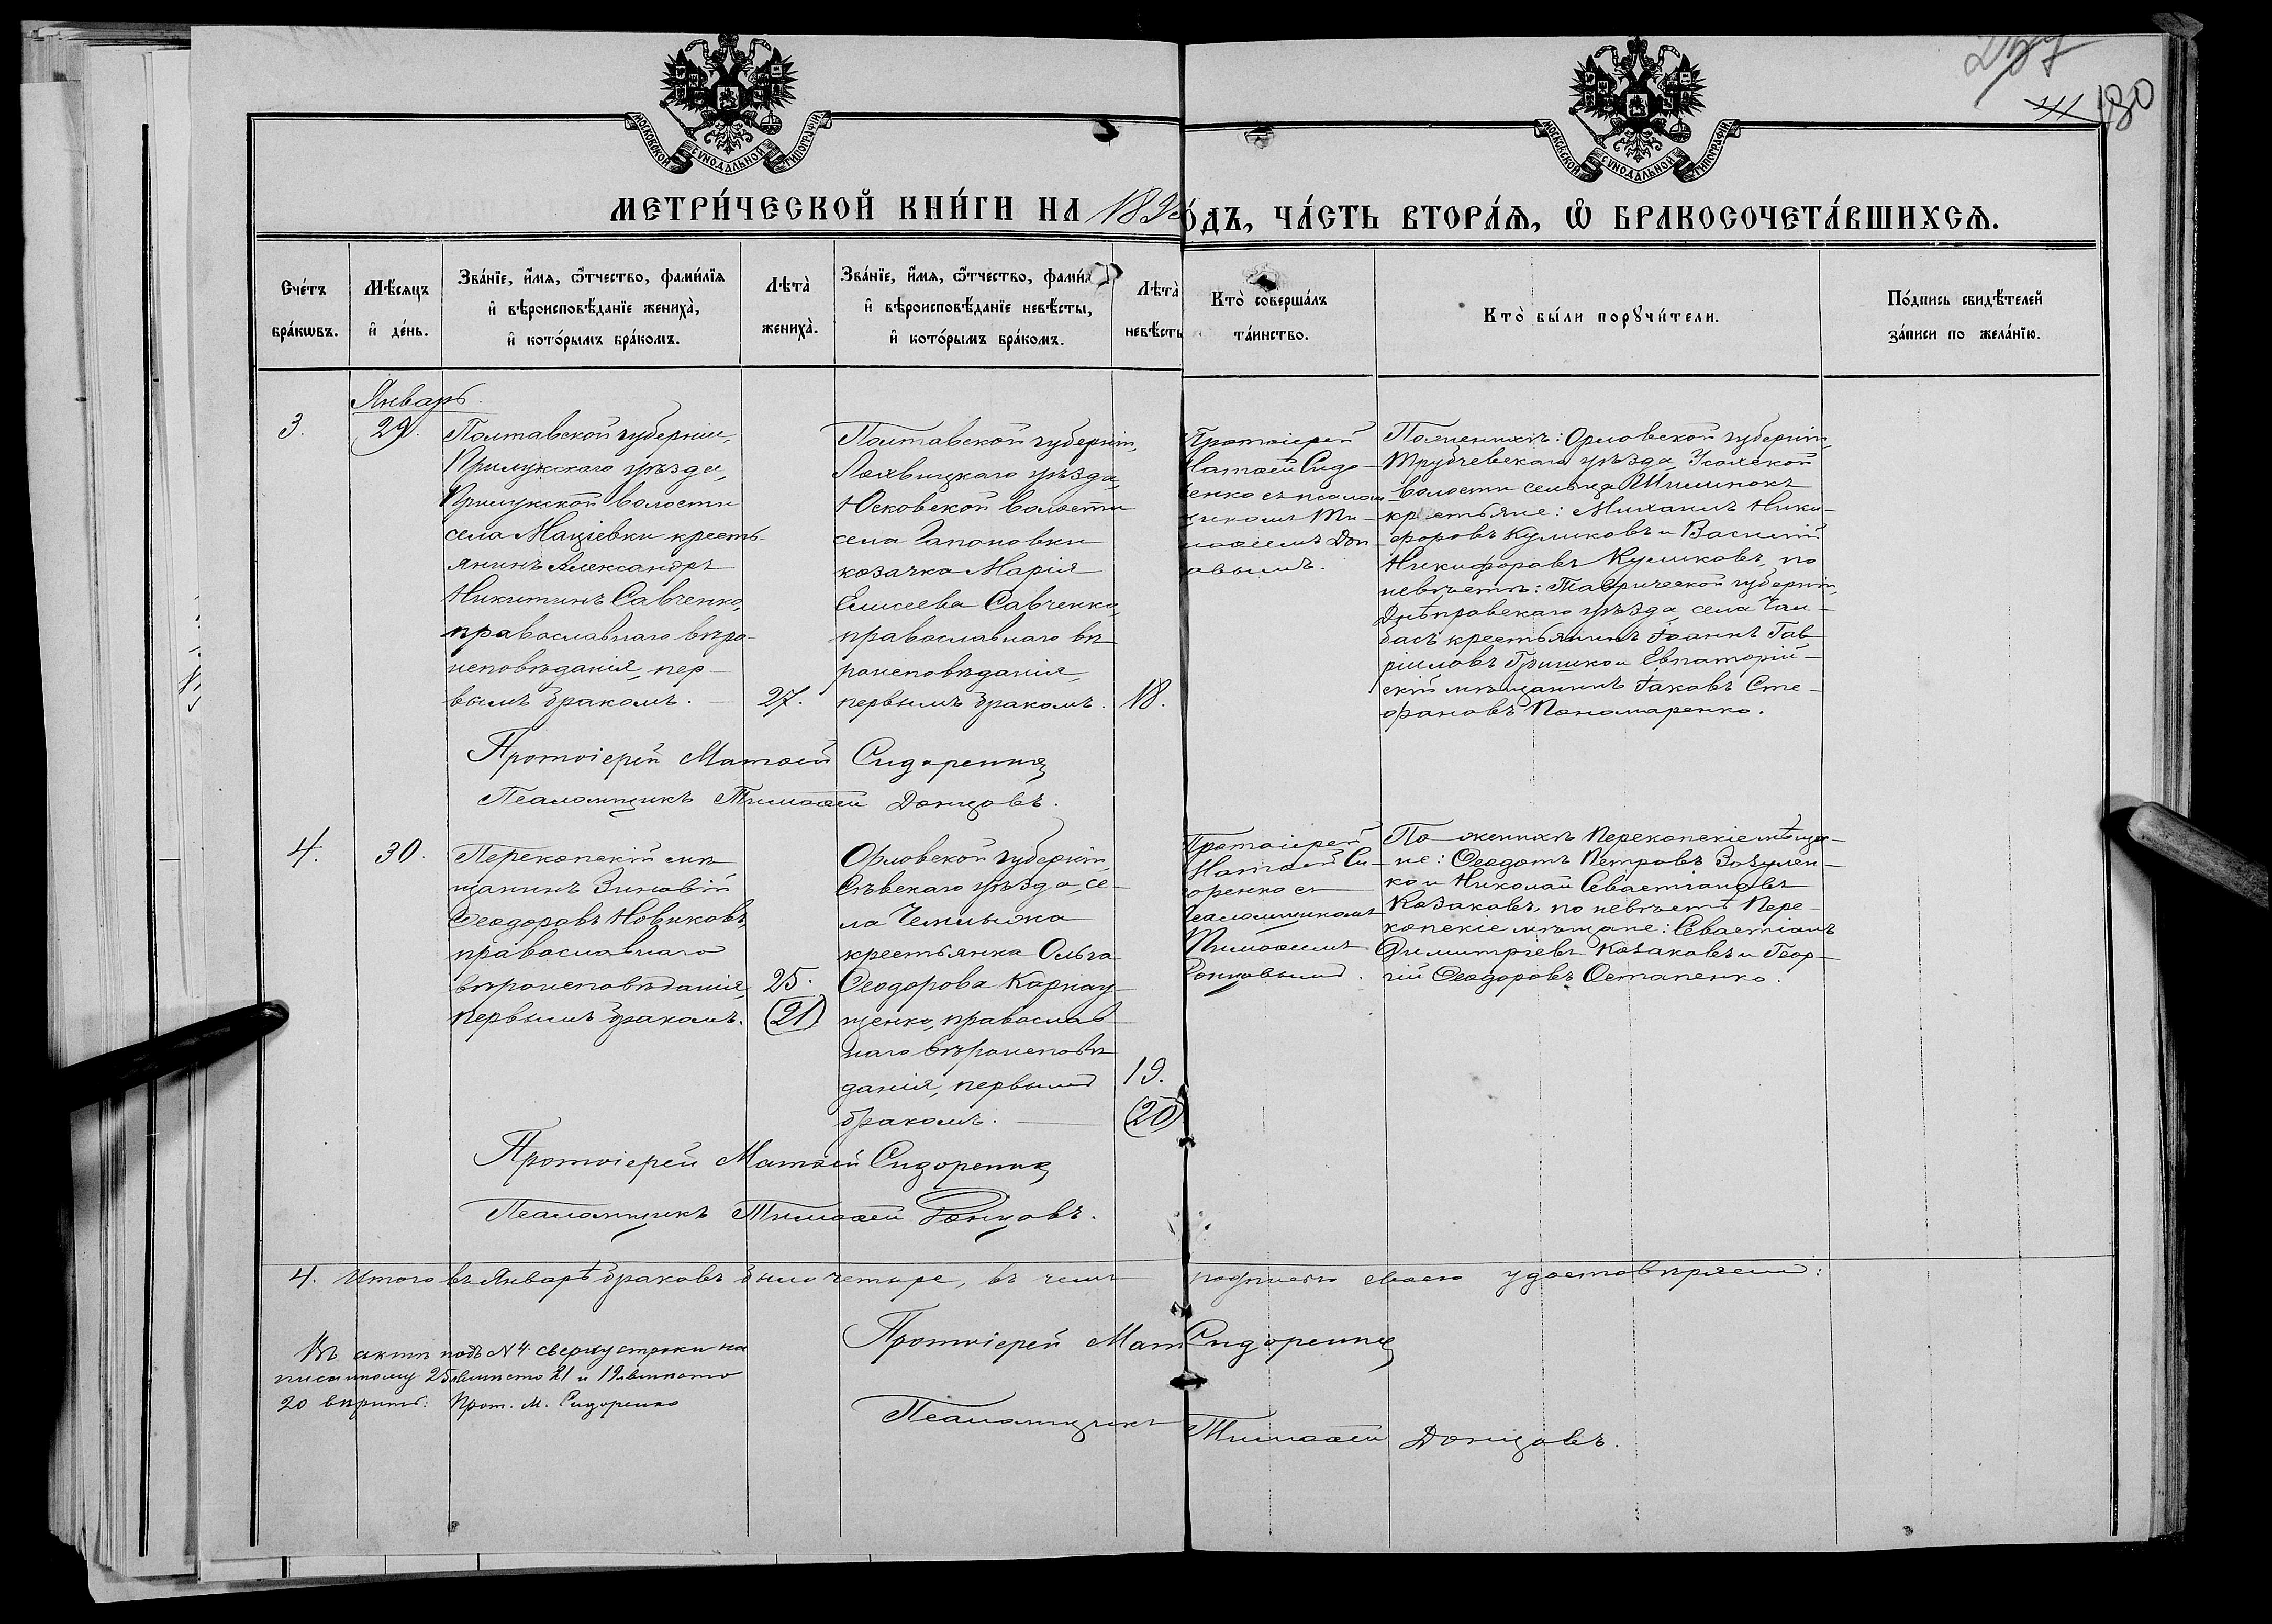 180
МОСКОВСКОЙ СѴНОДАЛЬНОЙ ТИПОГРАФІИ
МОСКОВСКОЙ СѴНОДАЛЬНОЙ ТИПОГРАФІИ
МЕТРИ́ЧЕСКОЙ КНИ́ГИ НА 189
О́ДЪ, ЧА́СТЬ ВТОРА́Ѧ, Ѽ БРАКОСОЧЕТА́ВШИХСѦ.
Сче́тъ бра́кѡвъ.
Мѣ́сяцъ и҆ де́нь.
Зва́нїе, и҆́мя, ѻ҆́тчество, фамѝлїя
и҆ вѣроисповѣ́данїе жениха̀,
и҆ кото́рымъ бра́комъ.
Лѣта̀ жениха̀.
Зва́нїе, и҆́мя, ѻ҆́тчество, фамѝл
и҆ вѣроисповѣ́данїе невѣ́сты,
и҆ кото́рымъ бра́комъ.
Лѣта̀ невѣ́сты
Кто̀ соверша́лъ
та́инство.
Кто̀ бы́ли порꙋчи́тели.
По́дпись свидѣ́телей
за́писи по жела́нїю.
Январь.
3.
29.
Полтавской губерніи,
Прилукскаго уѣзда,
Прилукской волости
села Маціевки кресть-
янинъ Александръ
Никитинъ Савченко,
православнаго вѣро-
исповѣданія, пер-
вымъ бракомъ. —
27.
Полтавской губерніи,
Лохвицкаго уѣзда,
Юсковской волости
села Гапоновки
козачка Марія
Елисеева Савченко,
православнаго вѣ
роисповѣданія,
первымъ бракомъ.
18.
Протоіерей
Матѳей Сидо-
ренко съ псалом
щикомъ Ти-
моѳеемъ Дон-
овымъ.
По женихѣ: Орловской губерніи,
Трубчевскаго уѣзда, Усохской
волости сельца Шилинокъ
крестьяне: Михаилъ Ники-
форовъ Куликовъ и Василій
Никифоровъ Куликовъ, по
невѣстѣ: Таврической губерніи,
Днѣпровскаго уѣзда, села Чап-
басъ крестьянинъ Іоаннъ Гав
ріиловъ Гришко и Евпаторій-
скій мѣщанинъ Іаковъ Сте-
фановъ Пономаренко.
Протоіерей Матѳей Сидоренко
Псаломщикъ Тимоѳей Донцовъ.
4.
30.
Перекопскій мѣ
щанинъ Зиновій
Ѳеодоровъ Новиковъ,
православнаго
вѣроисповѣданія,
первымъ бракомъ.
25.
(21)
Орловской губерніи,
Сѣвскаго уѣзда, се-
ла Чемлыжа
крестьянка Ольга
Ѳеодорова Карнау
щенко, православ
наго вѣроисповѣ
данія, первымъ
бракомъ. —
19.
(20)
Протоіерей
Матѳей Си-
оренко съ
Псаломщикомъ
Тимоѳеемъ
Донцовымъ.
По женихѣ Перекопскіе мѣща-
не: Ѳеодотъ Петровъ Зозулен-
ко и Николай Севастіановъ
Козаковъ, по невѣстѣ Пере-
копскіе мѣщане: Севастіанъ
Димитріевъ Козаковъ и Геор-
гій Ѳеодоровъ Остапенко.
Протоіерей Матѳей Сидоренко
Псаломщикъ Тимоѳей Донцовъ.
4. Итого въ Январѣ браковъ было четыре, въ чемъ подписью своею удостовѣряемъ:
Протоіерей Мат Сидоренко
Псаломщикъ Тимоѳей Донцовъ.
Въ актѣ подъ № 4. сверху строки на
писанному 25 вмѣсто 21 и 19 вмѣсто
20 вѣрить: Прот. М. Сидоренко